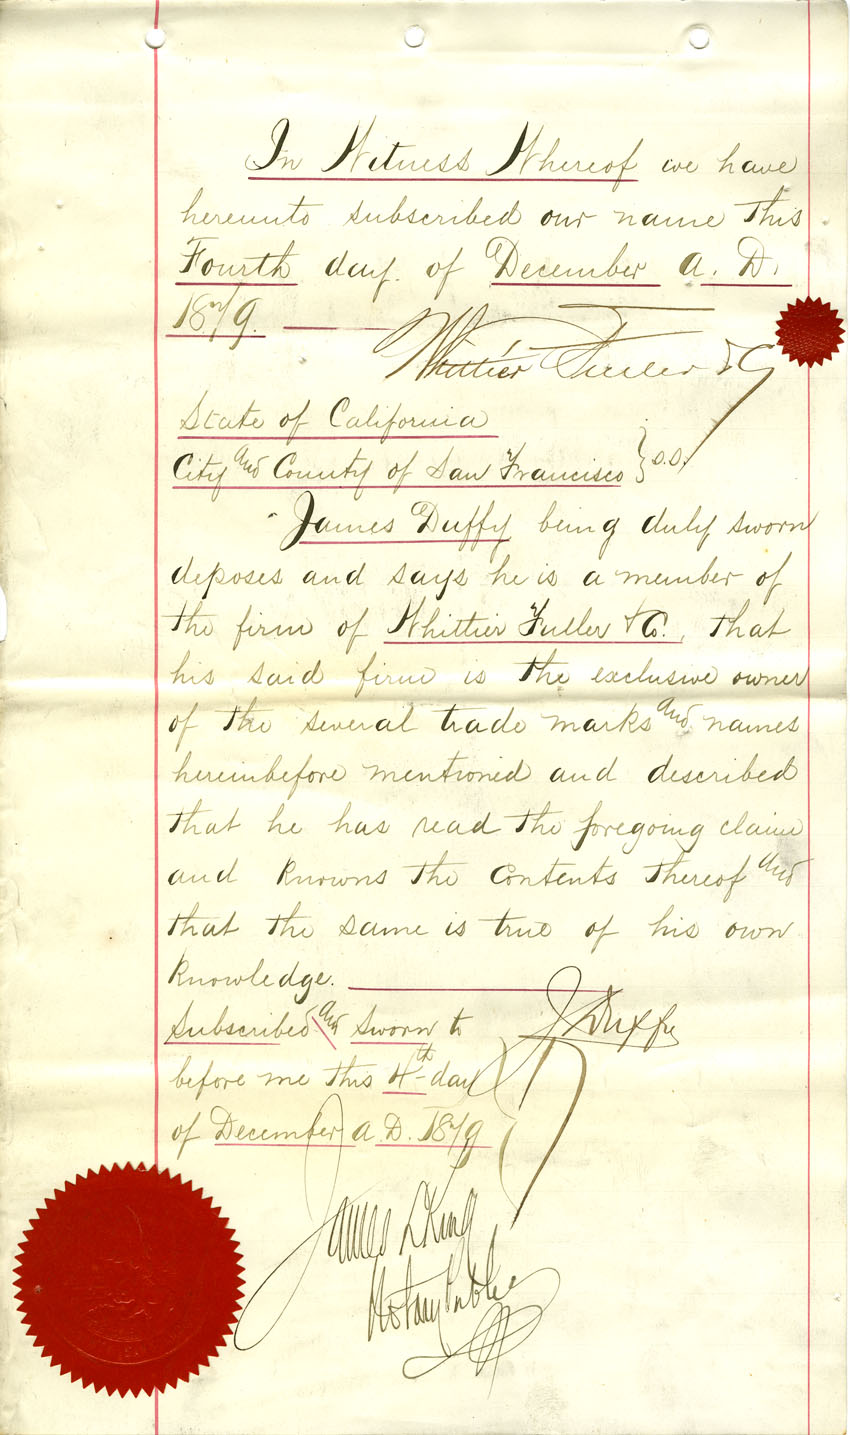 In Witness Whereof we have
hereunto subscribed our name this
Fourth day of December A. D.
1879.
Whittier Fuller & Co
State of California
City and County of San Francisco } S.S.
James Duffy being duly sworn
deposes and says he is a member of
the firm of Whittier Fuller & Co., that
his said firm is the exclusive owner
of the several trade marks and names
hereinbefore mentioned and described
that he has read the foregoing claim
and knowns the contents thereof and
that the same is true of his own
knowledge.
J Duffy
Subscribed and sworn to
before me this 4th day
of December A. D. 1879
James L King
Notary Public